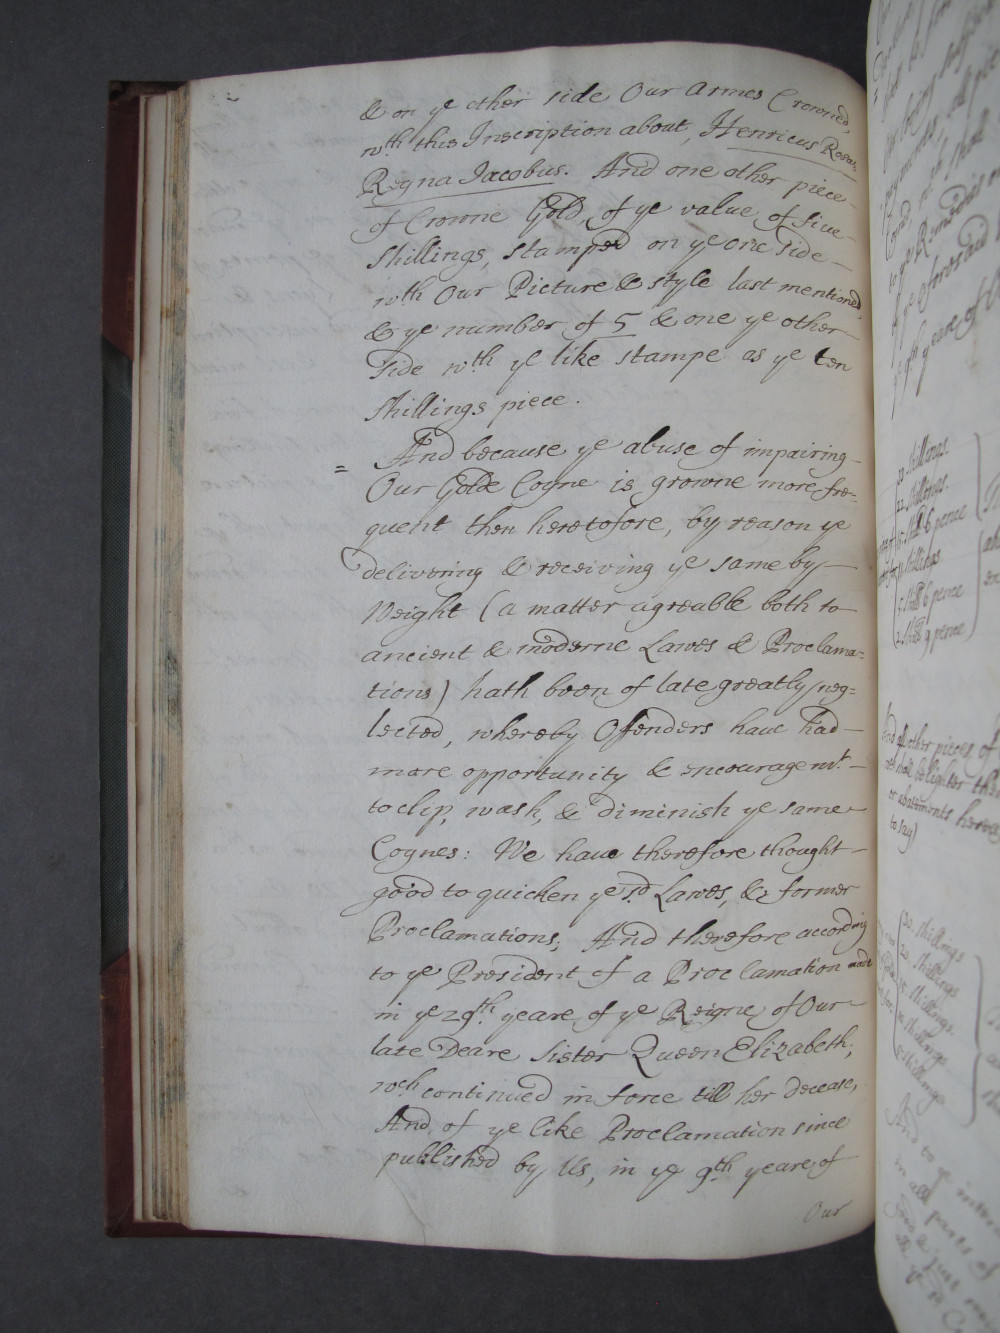 & on ye other side Our Armes Crowned,
wth this Inscription about, Henricus Rosas
Regna Jacobus. And one other piece
of Crowne Gold, of ye value of five
shillings, stamped on ye one side
wth Our Picture & style last mentioned,
& ye number of 5 & one ye other
side wth ye like stampe as ye ten
shillings piece.
= And because ye abuse of impairing
Our Golde Coyne is growne more fre=
quent then heretofore, by reason ye
delivering & receiving ye same by
Weight (a matter agreable both to
ancient & moderne Lawes & Proclama=
tions) hath been of late greatly neg=
lected, whereby Offenders have had
more opportunity & encouragemt
to clip, wash, & diminish ye same
Coynes: We have therefore thought
good to quicken ye sd Lawes, & former
Proclamations; And therefore according
to ye President of a Proclamation made
in ye 29th yeare of ye Reigne of Our
late Deare Sister Queen Elizabeth;
wch continued in force till her decease,
And, of ye like Proclamation since
published by Us, in ye 9th yeare of
Our
20 shillings
22 shillings
15 shill 6 pence
11 shillings
5 shill 6 pence
2 shill 9 pence
And all other pieces of
to say)
20 shillings
15 shillings
10 shillings
5 shillings
And to ye
in all parts of